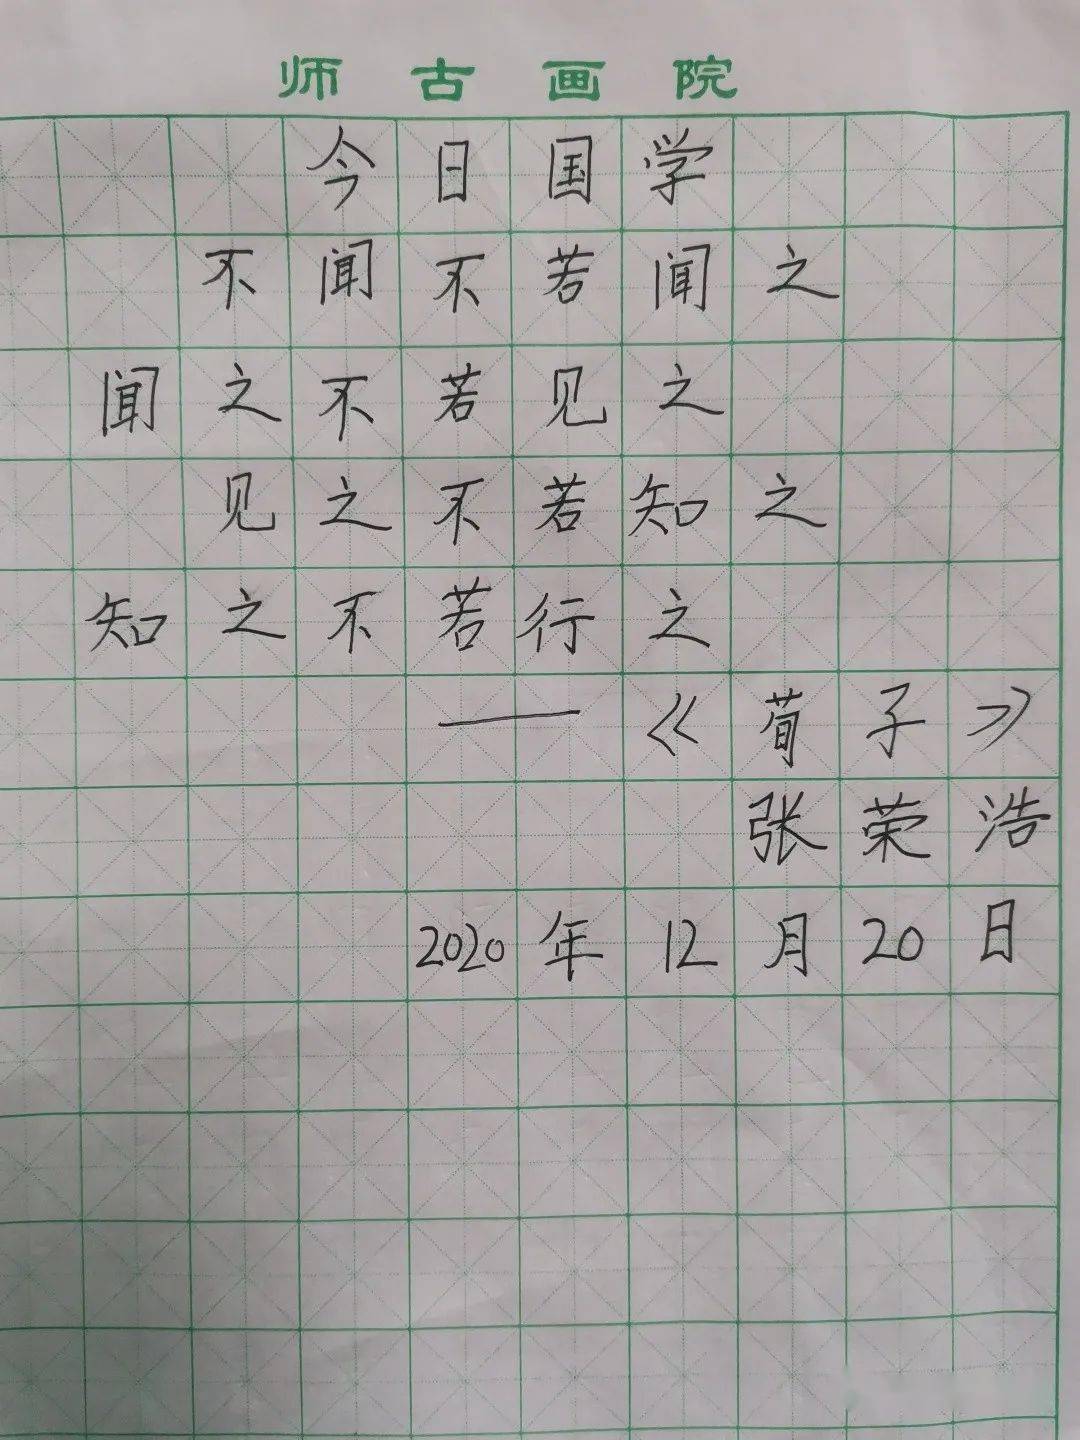 师古画院
今日国学
不闻不若闻之
闻之不若见之
见之不若知之
知之不若行之
——《荀子》
张荣浩
2020年12月20日